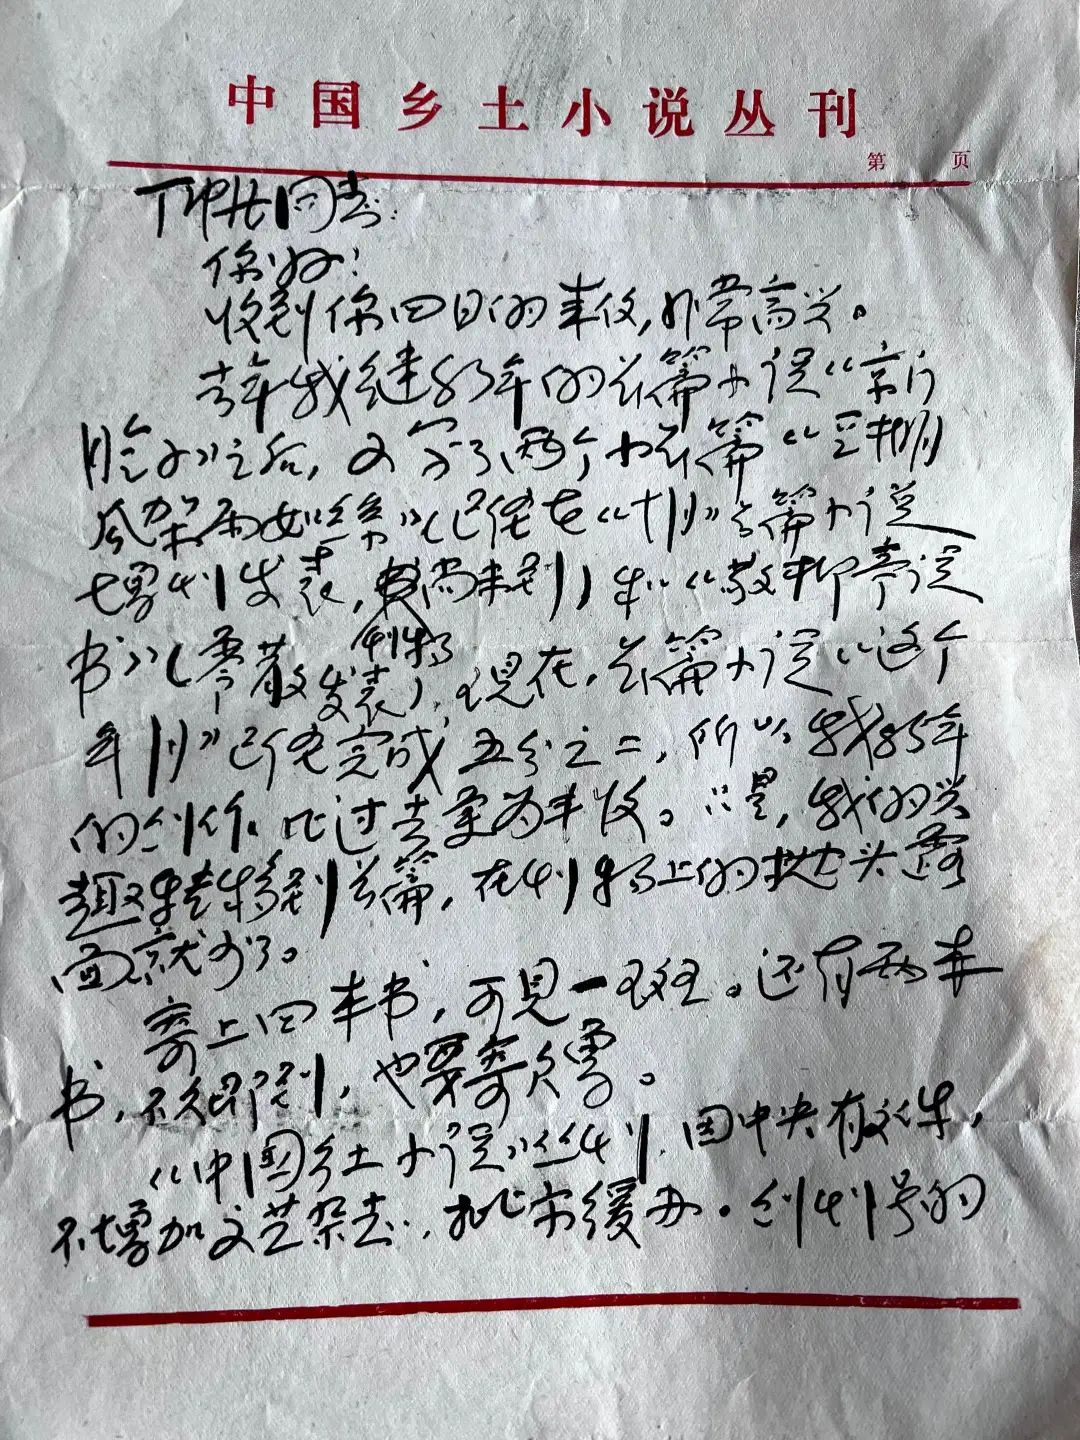 中国乡土小说丛刊
第 页
同志:
你好!
收到你四日的来信,非常高兴。
去年我继83年的长篇小说《京门
脸子》之后,又写了两个小长篇《豆棚
瓜架雨如丝》(已经在《十月》长篇小说
增刊发表,书尚未到)和《敬柳亭说
书》(零散刊物发表),现在,长篇小说《这个
年月》已经完成五分之二,所以我85年
的创作,比过去更为丰收。只是,我的兴
趣转移到长篇,在刊物上的抛头露
面就少了。
寄上四本书,可见一斑。还有两本
书,不久即到,也要寄给你。
《中国乡土小说》丛刊,因中央有文件,
不增加文艺杂志,批示缓办。创刊号的